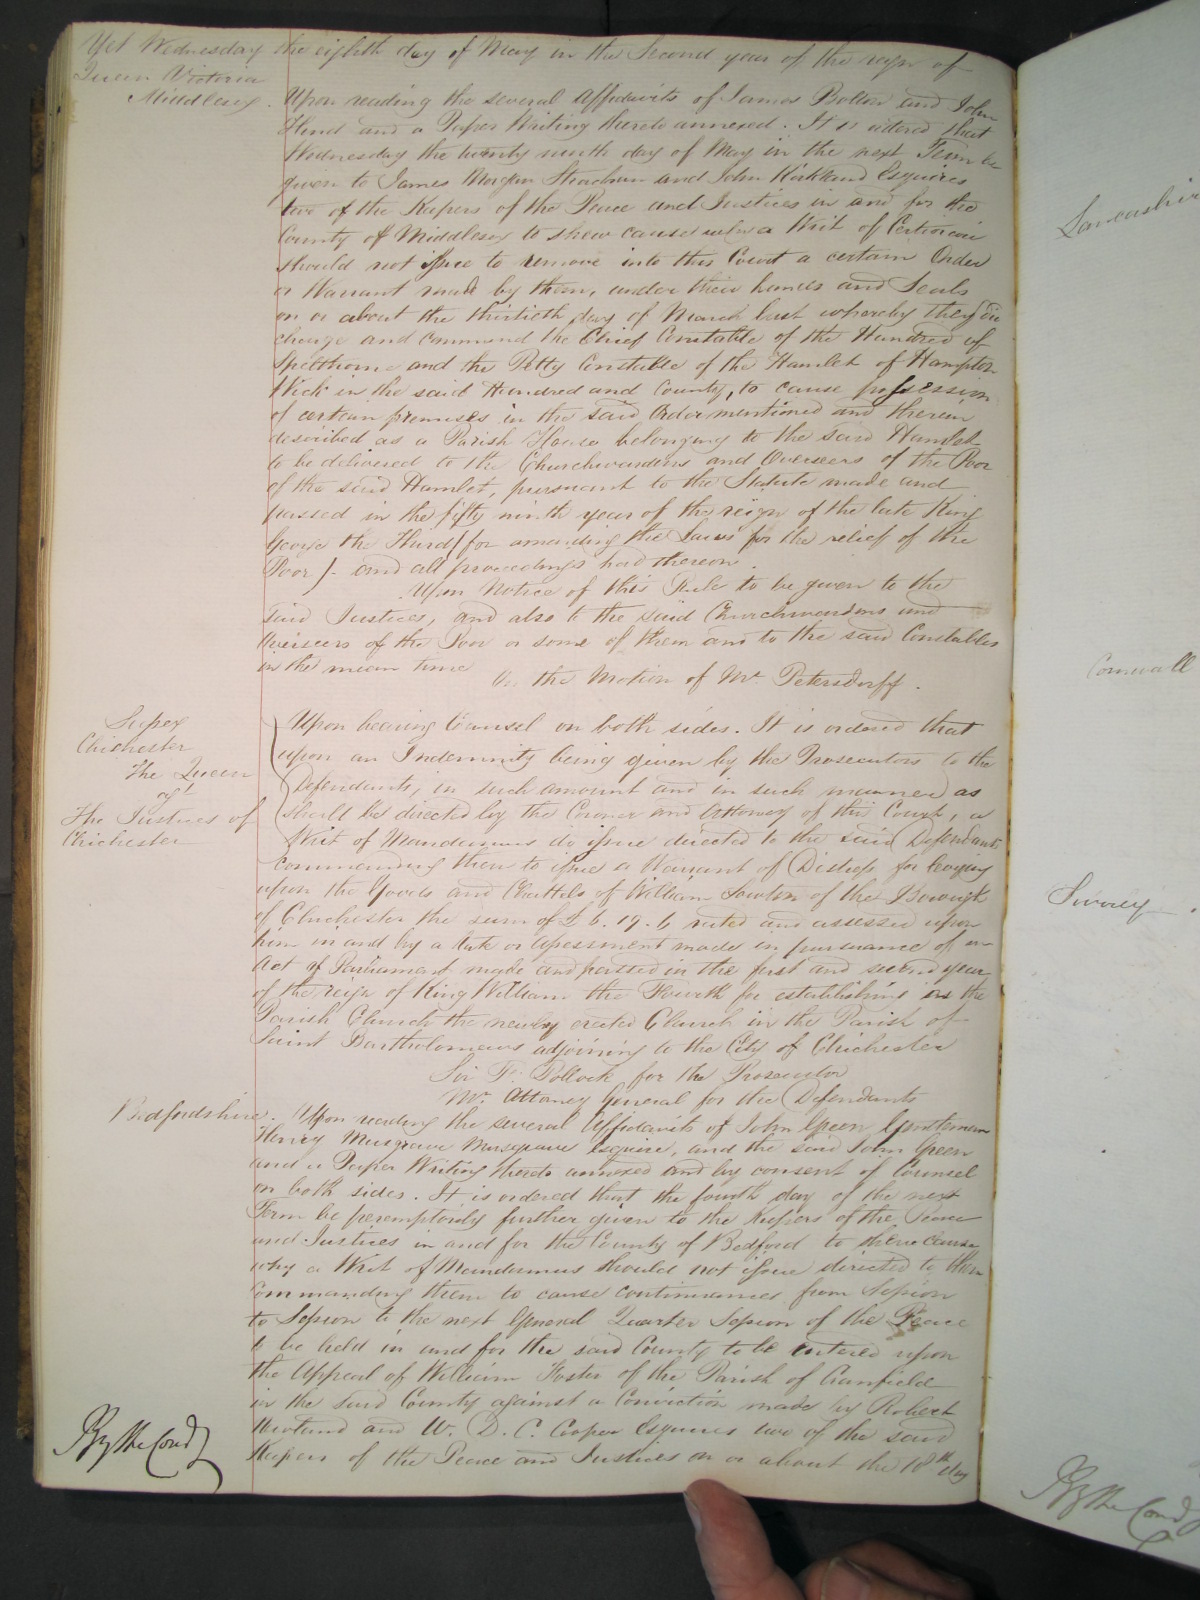 Yet Wednesday the eighth day of May in the Second year of the reign of
Queen Victoria
Middlesex. Upon reading the several Affidavits of James Bolton and John
Hind and a Paper Writing thereto annexed. It is ordered that
Wednesday the twenty ninth day of May in the next Term be
given to James Morgan Strachan and John Kirkland Esquires
two of the Keepers of the Peace and Justices in and for the
County of Middlesex to shew cause why a Writ of Certiorari
should not issue to remove into this Court a certain Order
or Warrant made by them, under their hands and Seals
on or about the thirtieth day of March last whereby they did
charge and command the Chief Constable of the Hundred of
Spelthorne and the Petty Constable of the Hamlet of Hampton
Wick in the said Hundred and County, to cause possession
of certain premises in the said Order mentioned and therein
described as a Parish House belonging to the said Hamlet
to be delivered to the Churchwardens and Overseers of the Poor
of the said Hamlet, pursuant to the Statute made and
passed in the fifty ninth year of the reign of the late King
George the Third (for amending the Laws for the relief of the
Poor) - and all proceedings had thereon.
Upon Notice of this Rule to be given to the
said Justices, and also to the said Churchwardens and
Overseers of the Poor or some of them and to the said Constables
in the mean time
On the Motion of Mr. Petersdorff.
Sussex
Chichester
The Queen
agt
The Justices of
Chichester
Upon hearing Counsel on both sides. It is ordered that
upon an Indemnity being given by the Prosecutors to the
Defendants, in such amount and in such manner as
shall be directed by the Coroner and Attorney of this Court, a
Writ of Mandamus do issue directed to the said Defendants
commanding them to issue a Warrant of Distress for levying
upon the Goods and Chattels of William of the Borough
of Chichester the sum of £6.19.6 rated and assessed upon
him in and by a Rate or Assessment made in pursuance of an
Act of Parliament made and passed in the first and second year
of the reign of King William the Fourth for establishing as the
Parish Church the newly erected Church in the Parish of
Saint Bartholomew adjoining to the City of Chichester
Sir F. Pollock for the Prosecutor
Mr. Attorney General for the Defendants
Bedfordshire. Upon reading the several Affidavits of John Green Gentleman
Henry Musgrave Musgrave Esquire, and the said John Green
and a Paper Writing thereto annexed and by consent of Counsel
on both sides. It is ordered that the fourth day of the next
Term be peremptorily further given to the Keepers of the Peace
and Justices in and for the County of Bedford to shew cause
why a Writ of Mandamus should not issue directed to them
commanding them to cause continuances from Session
to Session to the next General Quarter Session of the Peace
to be held in and for the said County to be entered upon
the Appeal of William Foster of the Parish of Cranfield
in the said County against a Conviction made by Robert
and W. D. C. Cooper Esquires two of the said
Keepers of the Peace and Justices on or about the 18th day
By the Court
Lancashire
Cornwall
Surrey
By the Court